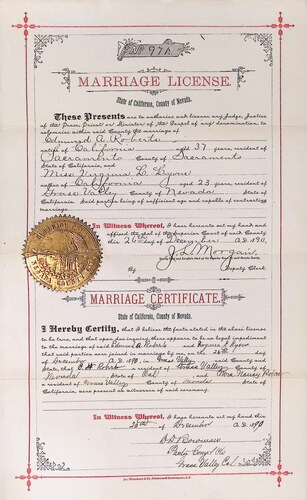 No 971
MARRIAGE LICENSE.
State of California, County of Nevada.
These Presents are to authorize and license any Judge, Justice
of the Peace, Priest or Minister of the Gospel of any denomination, to
solemnize within said County the marriage of
Edmund A. Roberts
native of California aged 37 years, resident of
Sacramento County of Sacramento
State of California, and
Miss Virginia L. Lyons
native of California aged 23 years, resident of
Grass Valley County of Nevada
State of California. Said parties being of sufficient age and capable of contracting
marriage.
In Witness Whereof, I have hereunto set my hand and
affixed the seal of the Superior Court of said County
this 26 day of December A.D. 1890.
J. L. Morgan
By Deputy Clerk.
MARRIAGE CERTIFICATE.
State of California, County of Nevada.
I Hereby Certify, that I believe the facts stated in the above license
to be true, and that upon due inquiry there appears to be no legal impediment
to the marriage of said Edmund A. Roberts and Virginia L. Lyons
that said parties were joined in marriage by me, on the 26th day
of December A.D. 1890, in Grass Valley, said County and
State, that a resident of Grass Valley County of
Nevada State of Cal and Nancy
a resident of Grass Valley, County of Nevada State of
California, were present as witnesses of said ceremony.
In Witness Whereof, I have hereunto set my hand this
26th December A.D. 1890
Grass Valley Cal